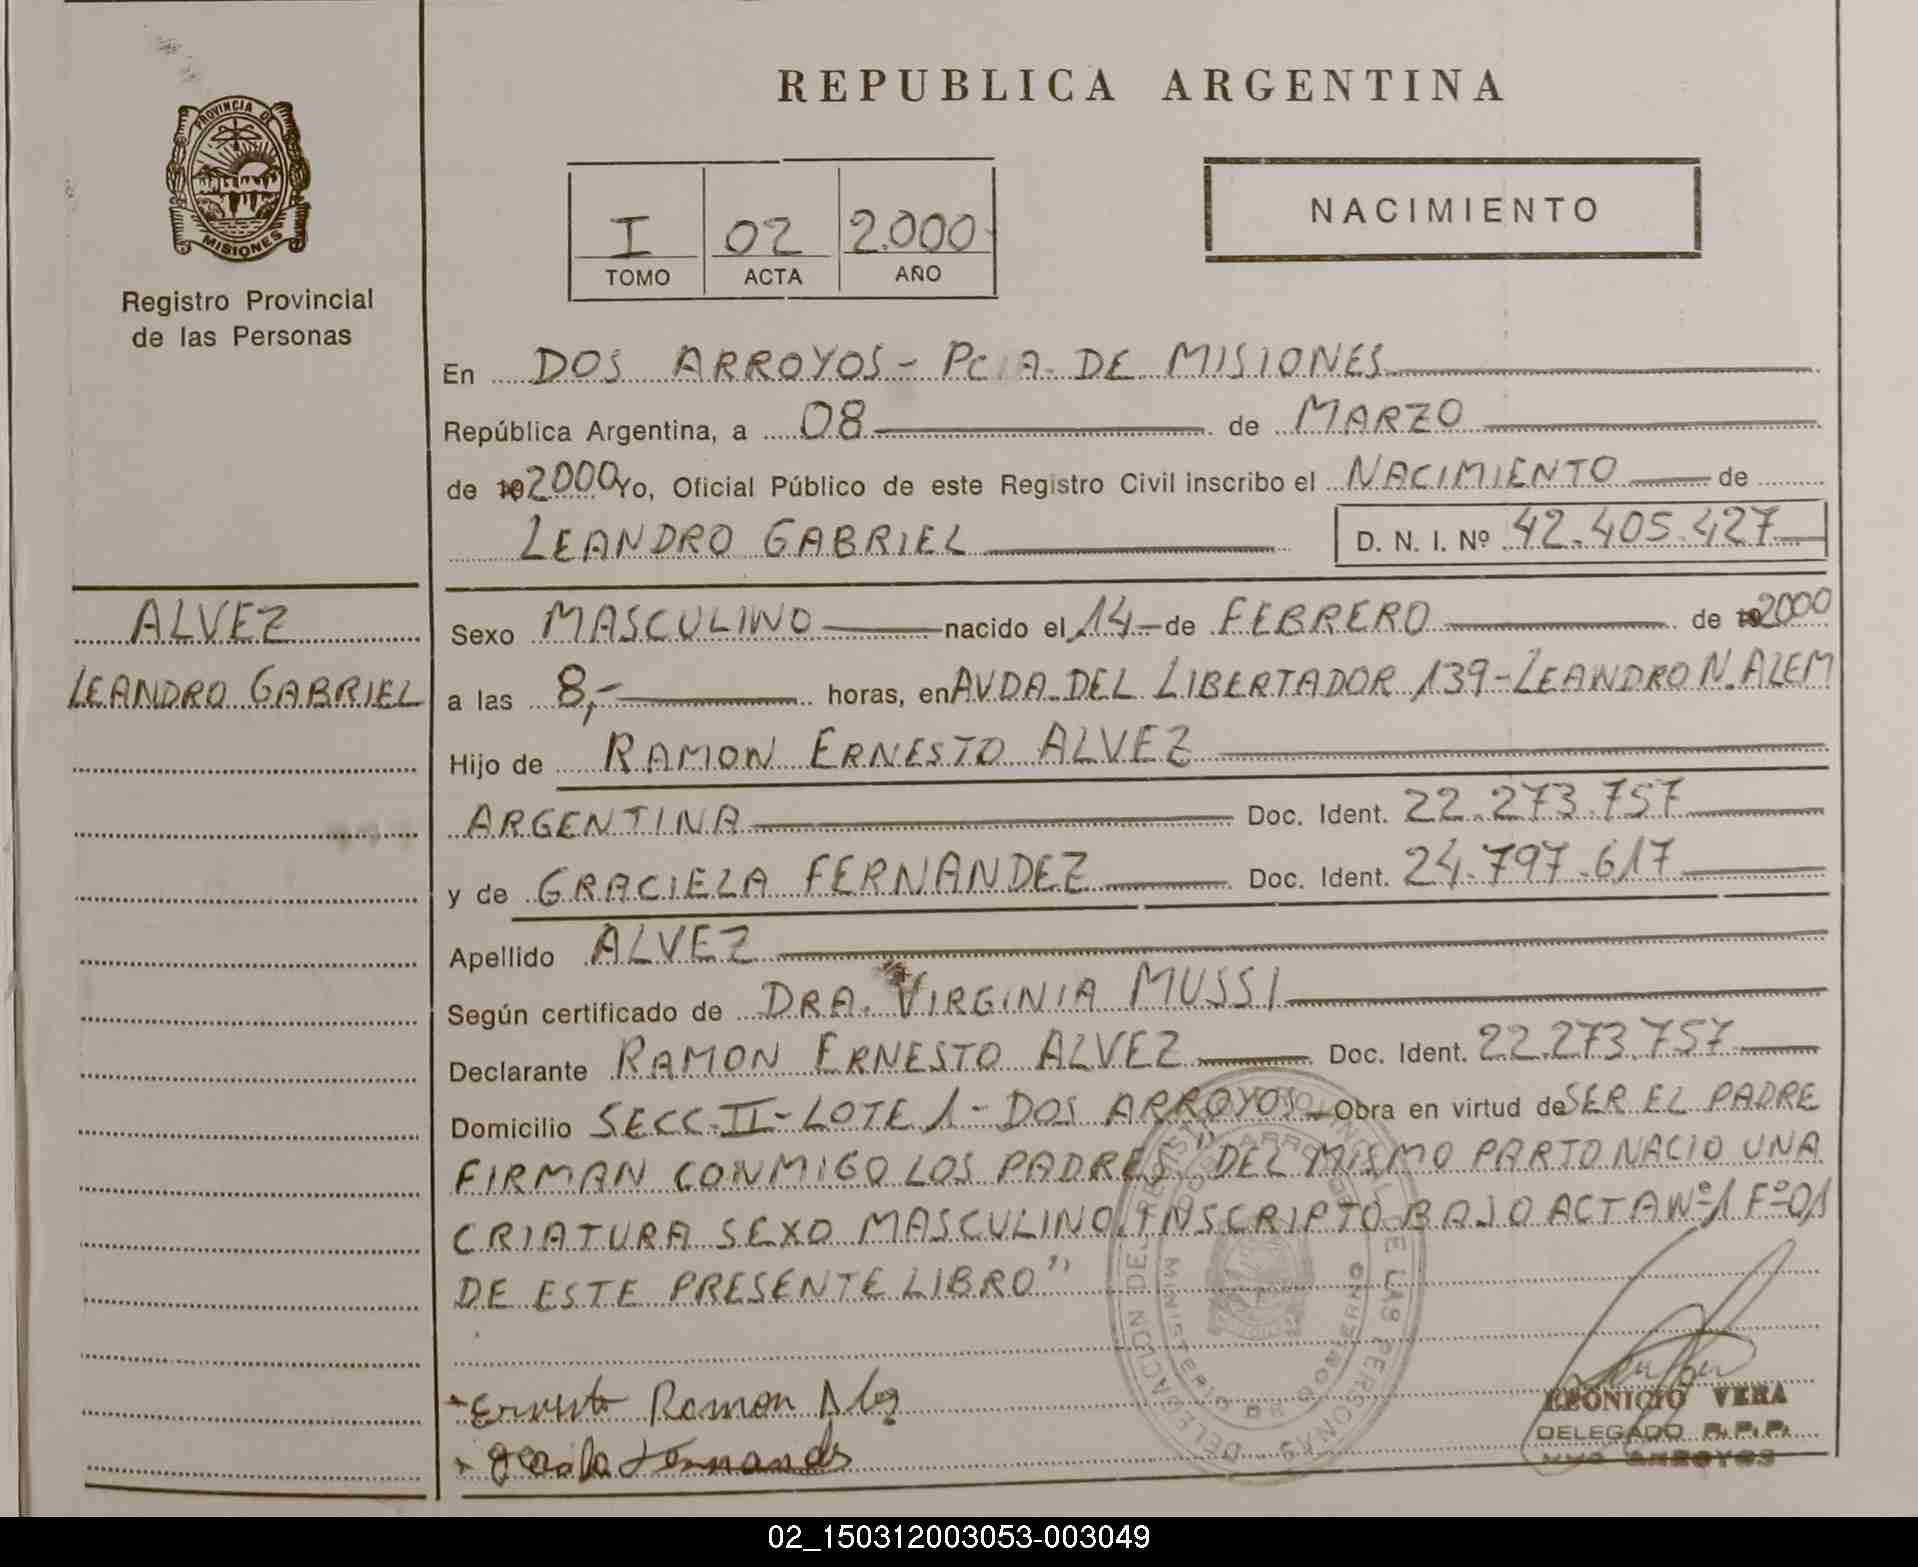 REPUBLICA ARGENTINA
PROVINCIA DE
MISIONES
Registro Provincial
de las Personas
I 02 2.000
TOMO ACTA AÑO
NACIMIENTO
En DOS ARROYOS - PCIA. DE MISIONES
República Argentina, a 08 de MARZO
de 19 2000 Yo, Oficial Público de este Registro Civil inscribo el NACIMIENTO de
LEANDRO GABRIEL D. N. I. Nº 42.405.427
ALVEZ
LEANDRO GABRIEL
Sexo MASCULINO nacido el 14 de FEBRERO de 19 2000
a las 8,- horas, en AVDA. DEL LIBERTADOR 139 - LEANDRO N. ALEM
Hijo de RAMON ERNESTO ALVEZ
ARGENTINA Doc. Ident. 22.273.757
y de GRACIELA FERNANDEZ Doc. Ident. 24.797.617
Apellido ALVEZ
Según certificado de DRA. VIRGINIA MUSSI
Declarante RAMON ERNESTO ALVEZ Doc. Ident. 22.273.757
Domicilio SECC. II - LOTE 1 - DOS ARROYOS Obra en virtud de SER EL PADRE
FIRMAN CONMIGO LOS PADRES "DEL MISMO PARTO NACIO UNA
CRIATURA SEXO MASCULINO, INSCRIPTO BAJO ACTA Nº 1 Fº 01
DE ESTE PRESENTE LIBRO"
Ernesto Ramon
DELEGACION DEL REGISTRO PROVINCIAL DE LAS PERSONAS
MINISTERIO DE GOBIERNO
DOS ARROYOS
VERA
DELEGADO R.P.P.
ARROYOS
02_150312003053-003049